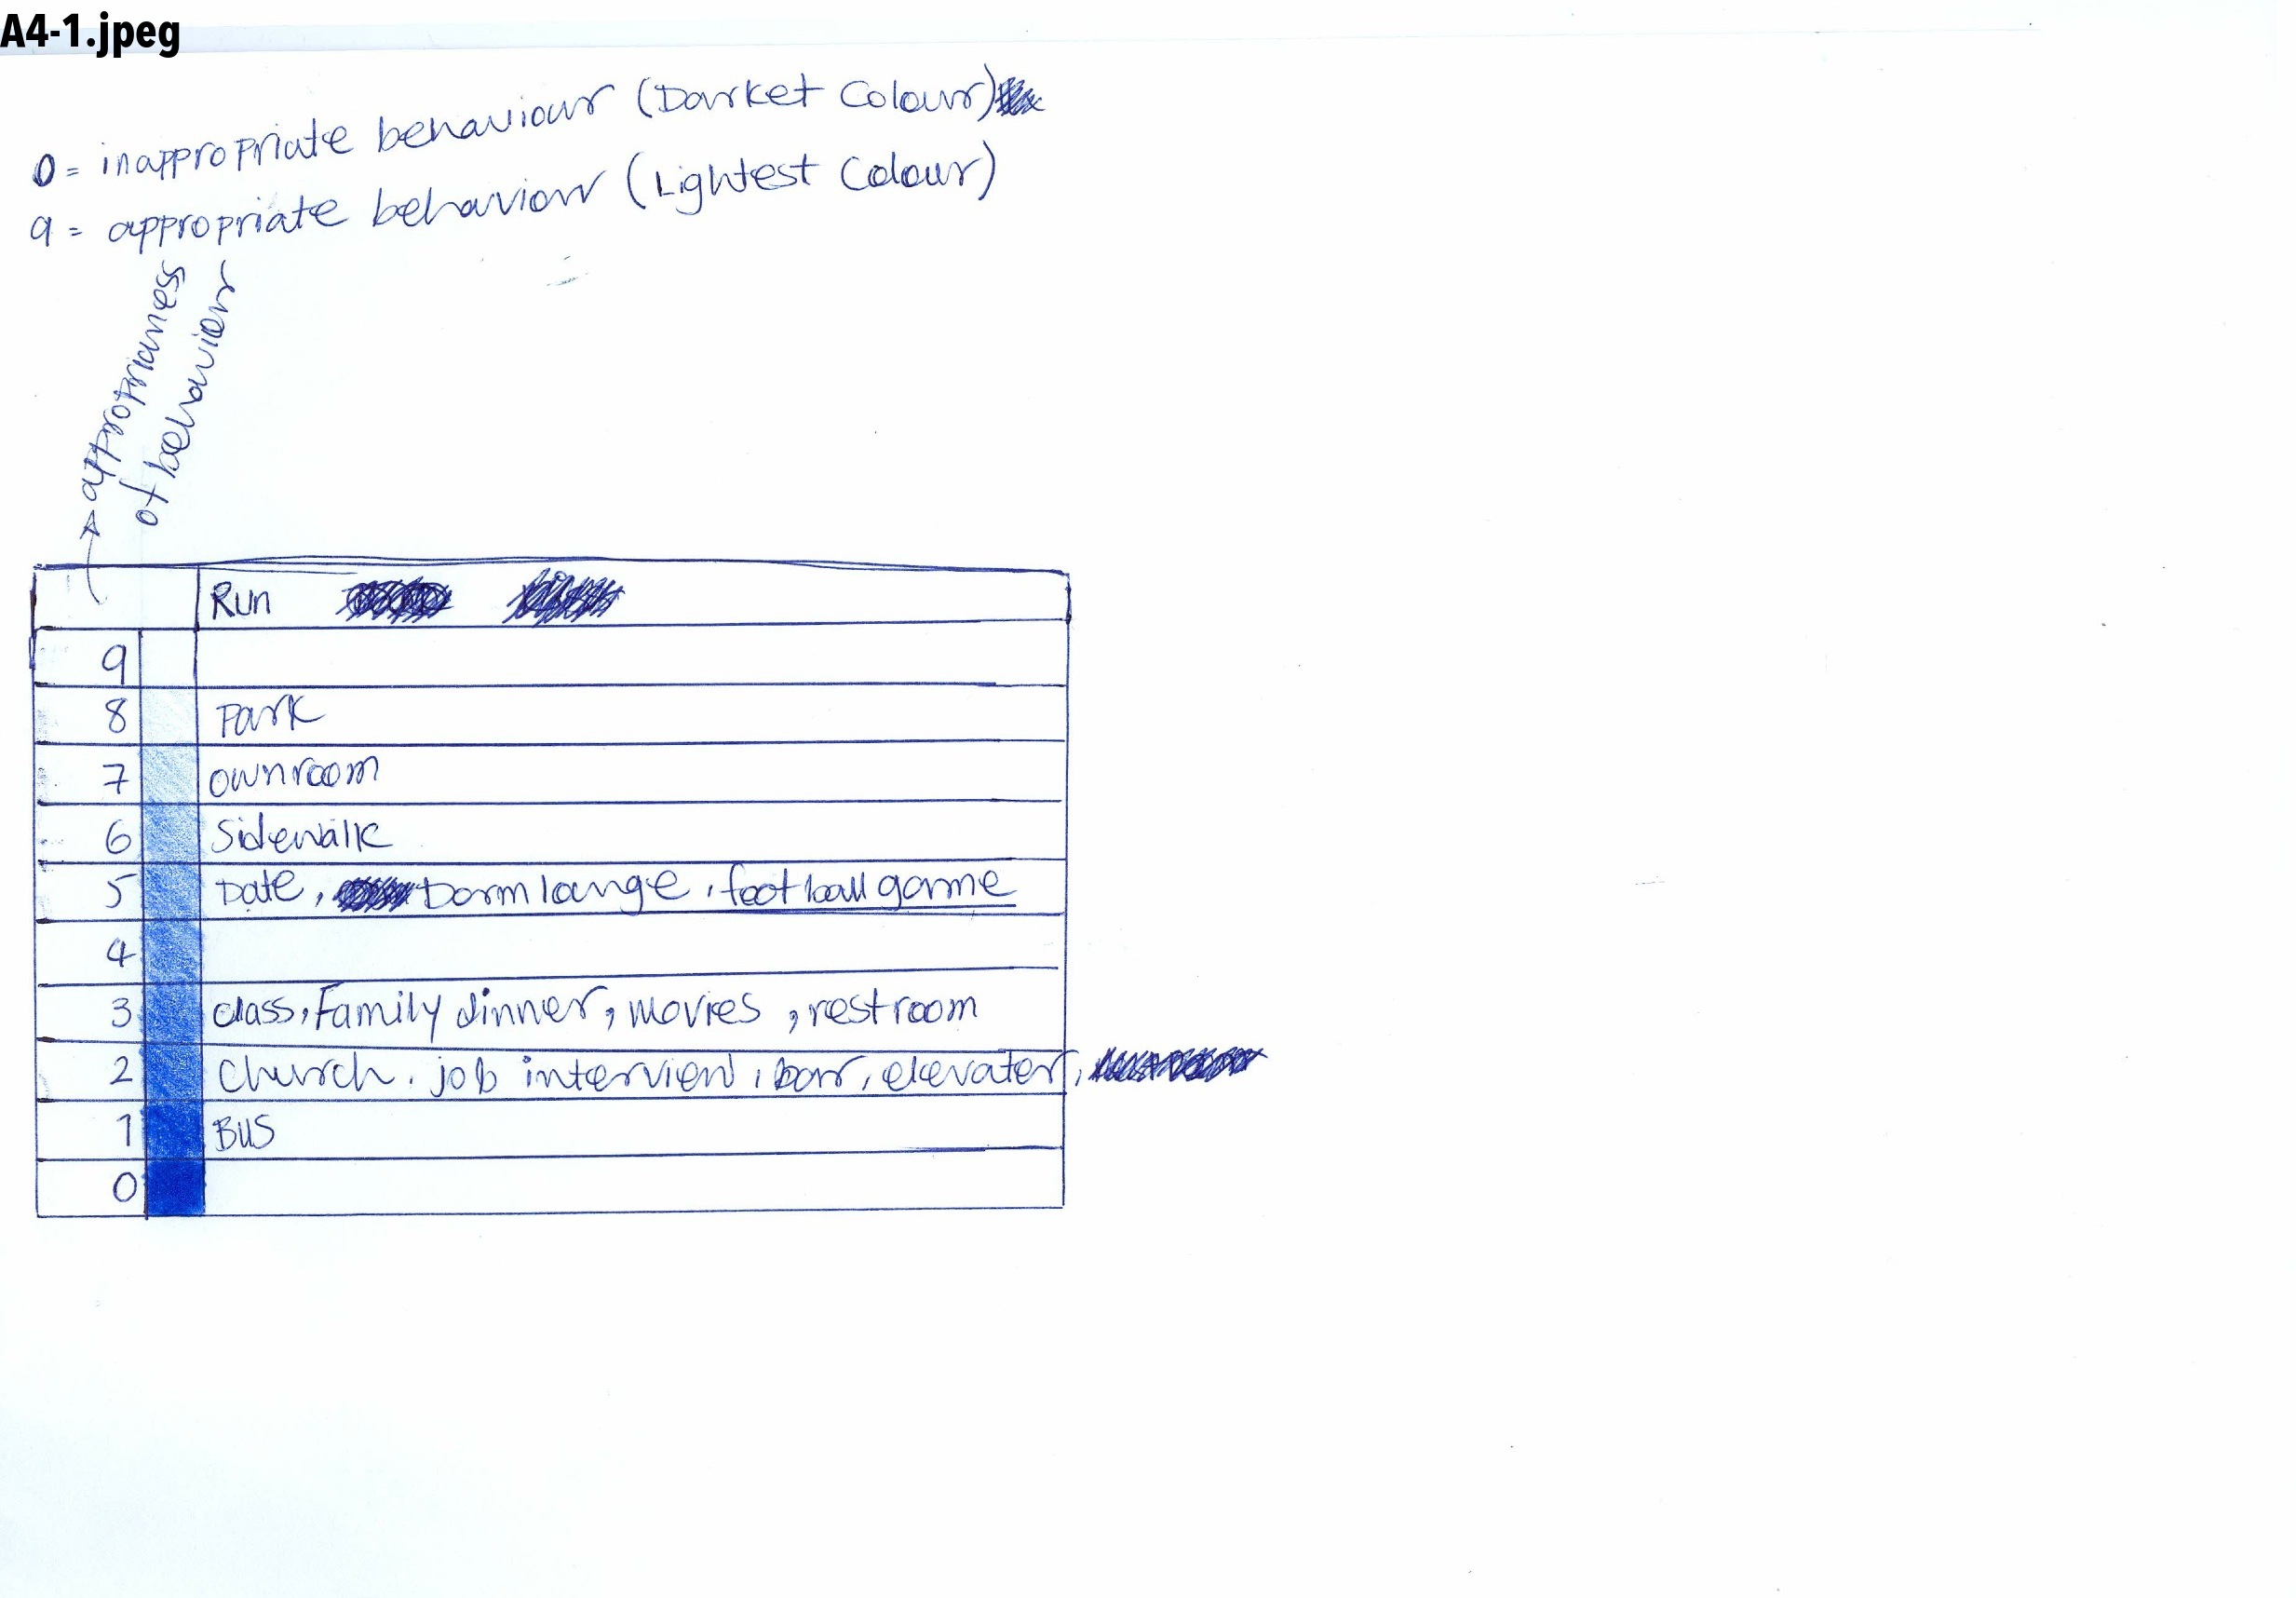 A4-1.jpeg
0 = inappropriate behaviour (Darket Colour)
9 = appropriate behaviour (Lightest Colour)
appropriamess
of behaviour
Run
9
8 Park
7 ownroom
6 Sidewalk
5 Date, Dorm lounge, football game
4
3 class, Family dinner, movies, restroom
2 Church. job interview, bar, elevater,
1 BUS
0